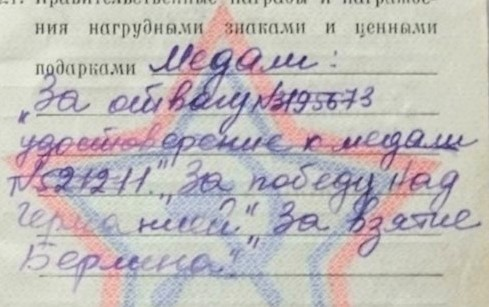 2.1. Правительственные награды и награжде-
ния нагрудными знаками и ценными
подарками Медали:
„За отвагу №3195673
удостоверение к медали
№521211. „За победу над
Германией" „За взятие
Берлина"